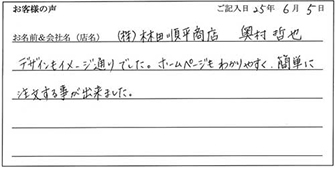 お客様の声 ご記入日 25年 6月 5日
お名前&会社名(店名) (株)林田順平商店 奥村哲也
デザインもイメージ通りでした。ホームページもわかりやすく、簡単に
注文する事が出来ました。